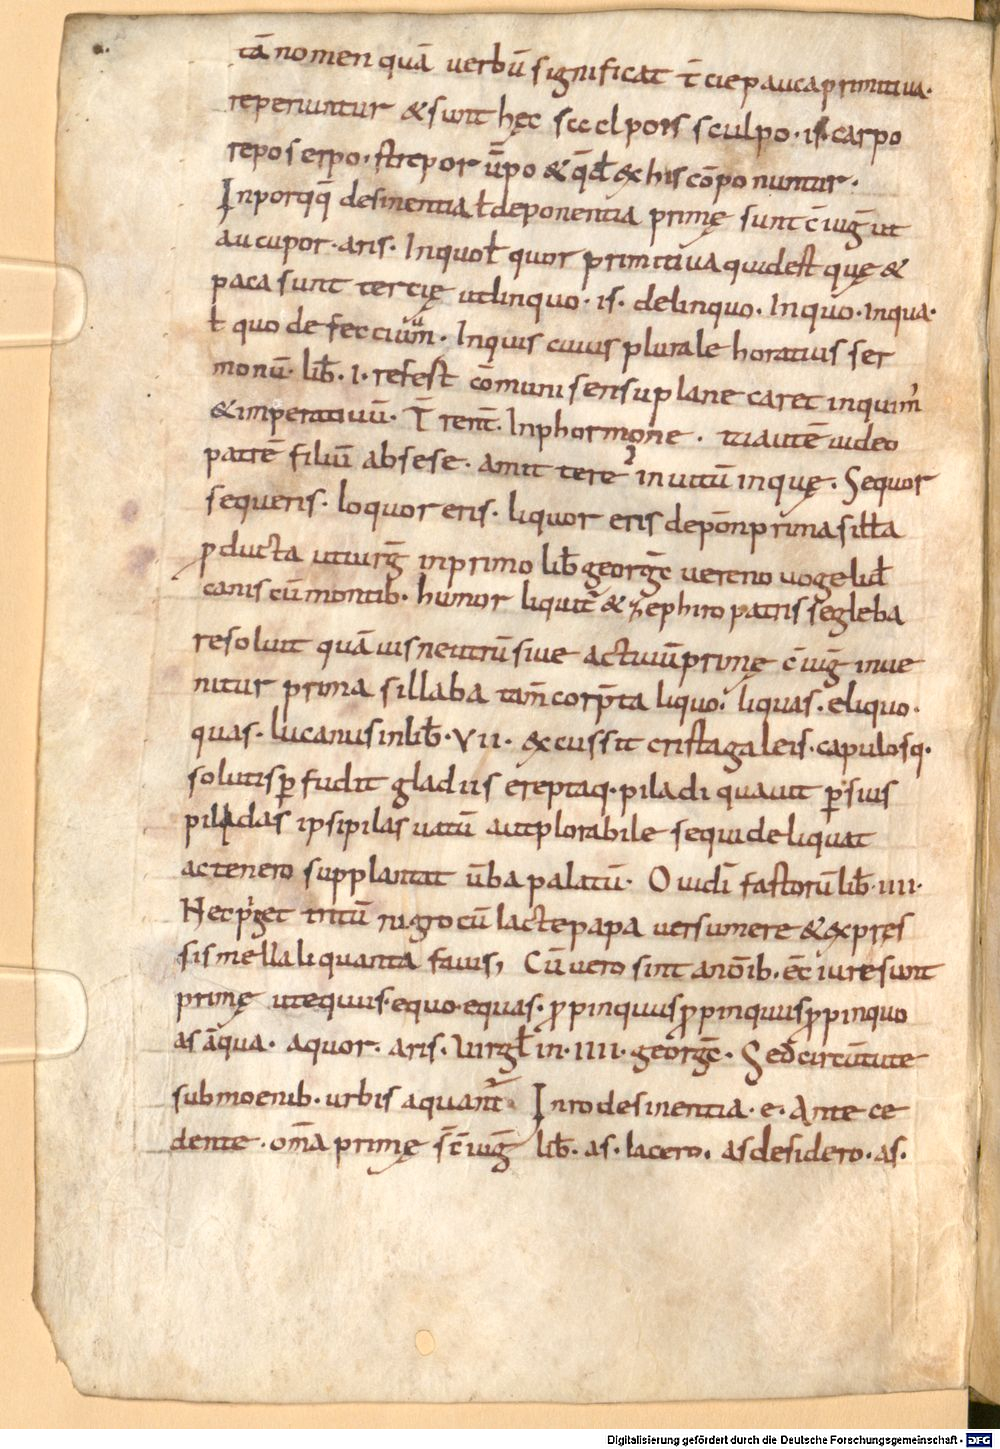 tā nomen quā uerbū significat t̄ cie pauca primitiua.
reperiuntur & sunt hęc sccclpois sculpo. is. carpo
repo serpo. strepor ū̄po & q̄d ex his cōponuntur.
In por qq̄ desinentia ł deponentia primę sunt c̄iuḡ ut
aucupor. aris. In quo ł quor primitiua quidest quę &
paca sunt tercię ut linquo. is. delinquo. Inquo. inqua.
ł quo defecciuū. Inquis cuius plurale horatius ser
monū. lib̄. I. refest cōmuni sensu plane caret inquim̄
& imperatiuū. T̄ rent̄. In phormone. tu autē uideo
patrē filiū ab sese. amit tere inuitū inquę. Sequor
sequeris. loquor eris. liquor eris depōn prima silła
ꝓducta ut uirḡ in primo lib̄ georgc̄ uere no uo gelid̄
canis cū montib. humor liquit & zephiro patris se gleba
resoluit quāuis neutrū siue actiuū primę c̄iuḡ inue
nitur prima sillaba tam̄ corp̄ta liquo. liquas. eliquo.
quas. lucanus in lib̄. VII. excussit crista galeis. capulosq.
solutis ꝑfudit gladiis ereptaq. pila diquauit ꝑsius
pilądas ipsipilas uatū aut plorabile se qui de liquat
ac tenero supplantat ūba palatū. Ouidī fastorū lib̄. IIII.
Nec pīget tritū niueo cū lacte papauer sumere & expres
sis mella liquanta fauis, Cū uero sint a nōib. ēc iure sunt
primę ut equus. equo. equas. ꝓpinquus ꝓpinquus ꝓpinquo
as āqua. aquor. aris. Uirgł in. IIII. georgc̄. Sed circū tute
sub moenib. urbis aquant̄ In ro desinentia. e. Ante ce
dente. om̄a primę s̄ c̄iuḡ lib̄. as. lacero. as desidero. as.
Digitalisierung gefördert durch die Deutsche Forschungsgemeinschaft - DFG